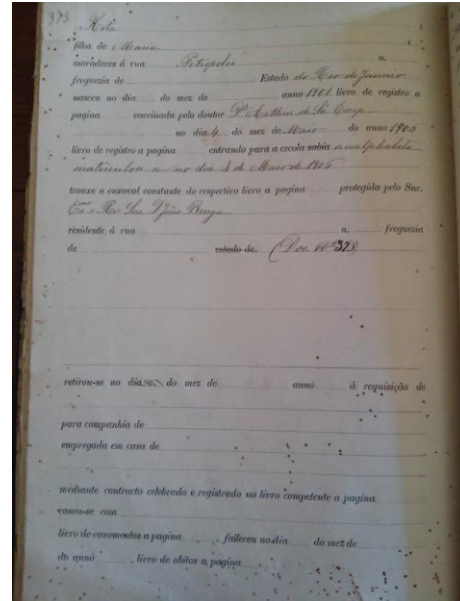 373 Rita
filha de Maria
moradores á rua Petropolis n.
freguezia de Estado do Rio de Janeiro
nasceu no dia do mez de anno 1901 livro de registro a
pagina vaccinada pelo doutor Dr Arthur de Sá Earp
no dia 4 do mez de Maio do anno 1905
livro de registro a pagina entrando para a escola sabia analphabeta
matriculou-se no dia 4 de Maio de 1905
trouxe o enxoval constante do respectivo livro a pagina protegida pelo Snr.
Ex e Rev Snr D João Braga
residente á rua n. freguezia
de estado de (Doc Nº 373)
retirou-se no dia do mez de anno á requisição de
para companhia de
empregada em casa de
mediante contracto celebrado e registrado no livro competente a pagina
casou-se com
livro de casamentos a pagina , falleceu no dia do mez de
do anno livro de obitos a pagina